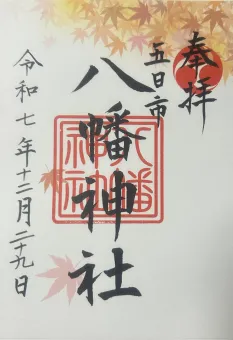 奉拝
五日市
八幡神社
八幡神社
令和七年十二月二十九日